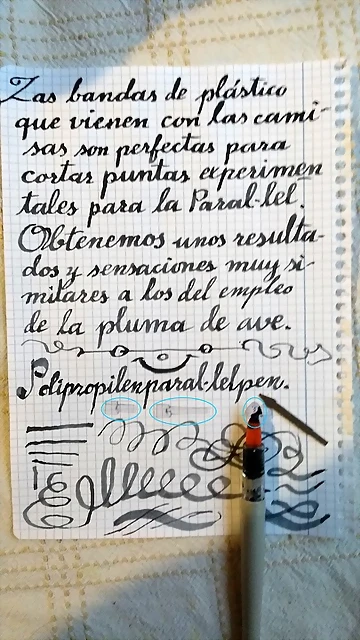 Las bandas de plástico
que vienen con las cami-
sas son perfectas para
cortar puntas experimen
tales para la Paral·lel.
Obtenemos unos resulta-
dos y sensaciones muy si-
milares a los del empleo
de la pluma de ave.
Polipropilenparal·lelpen.